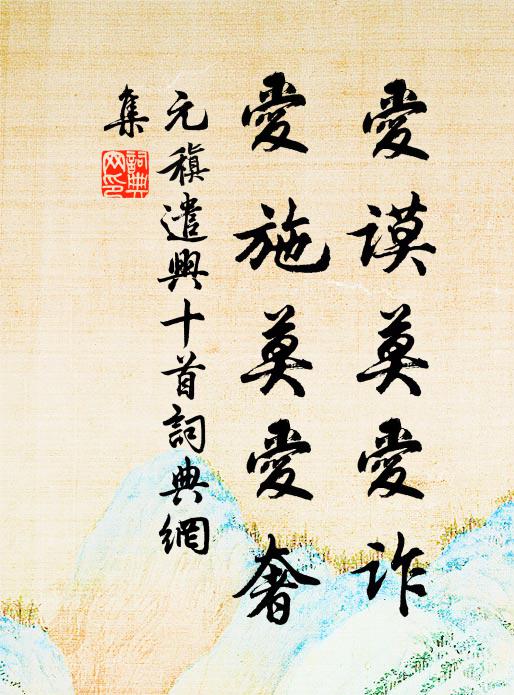 愛謨莫愛詐
愛施莫愛奢
元稹遣興十首詞典網
集
詞典
网印